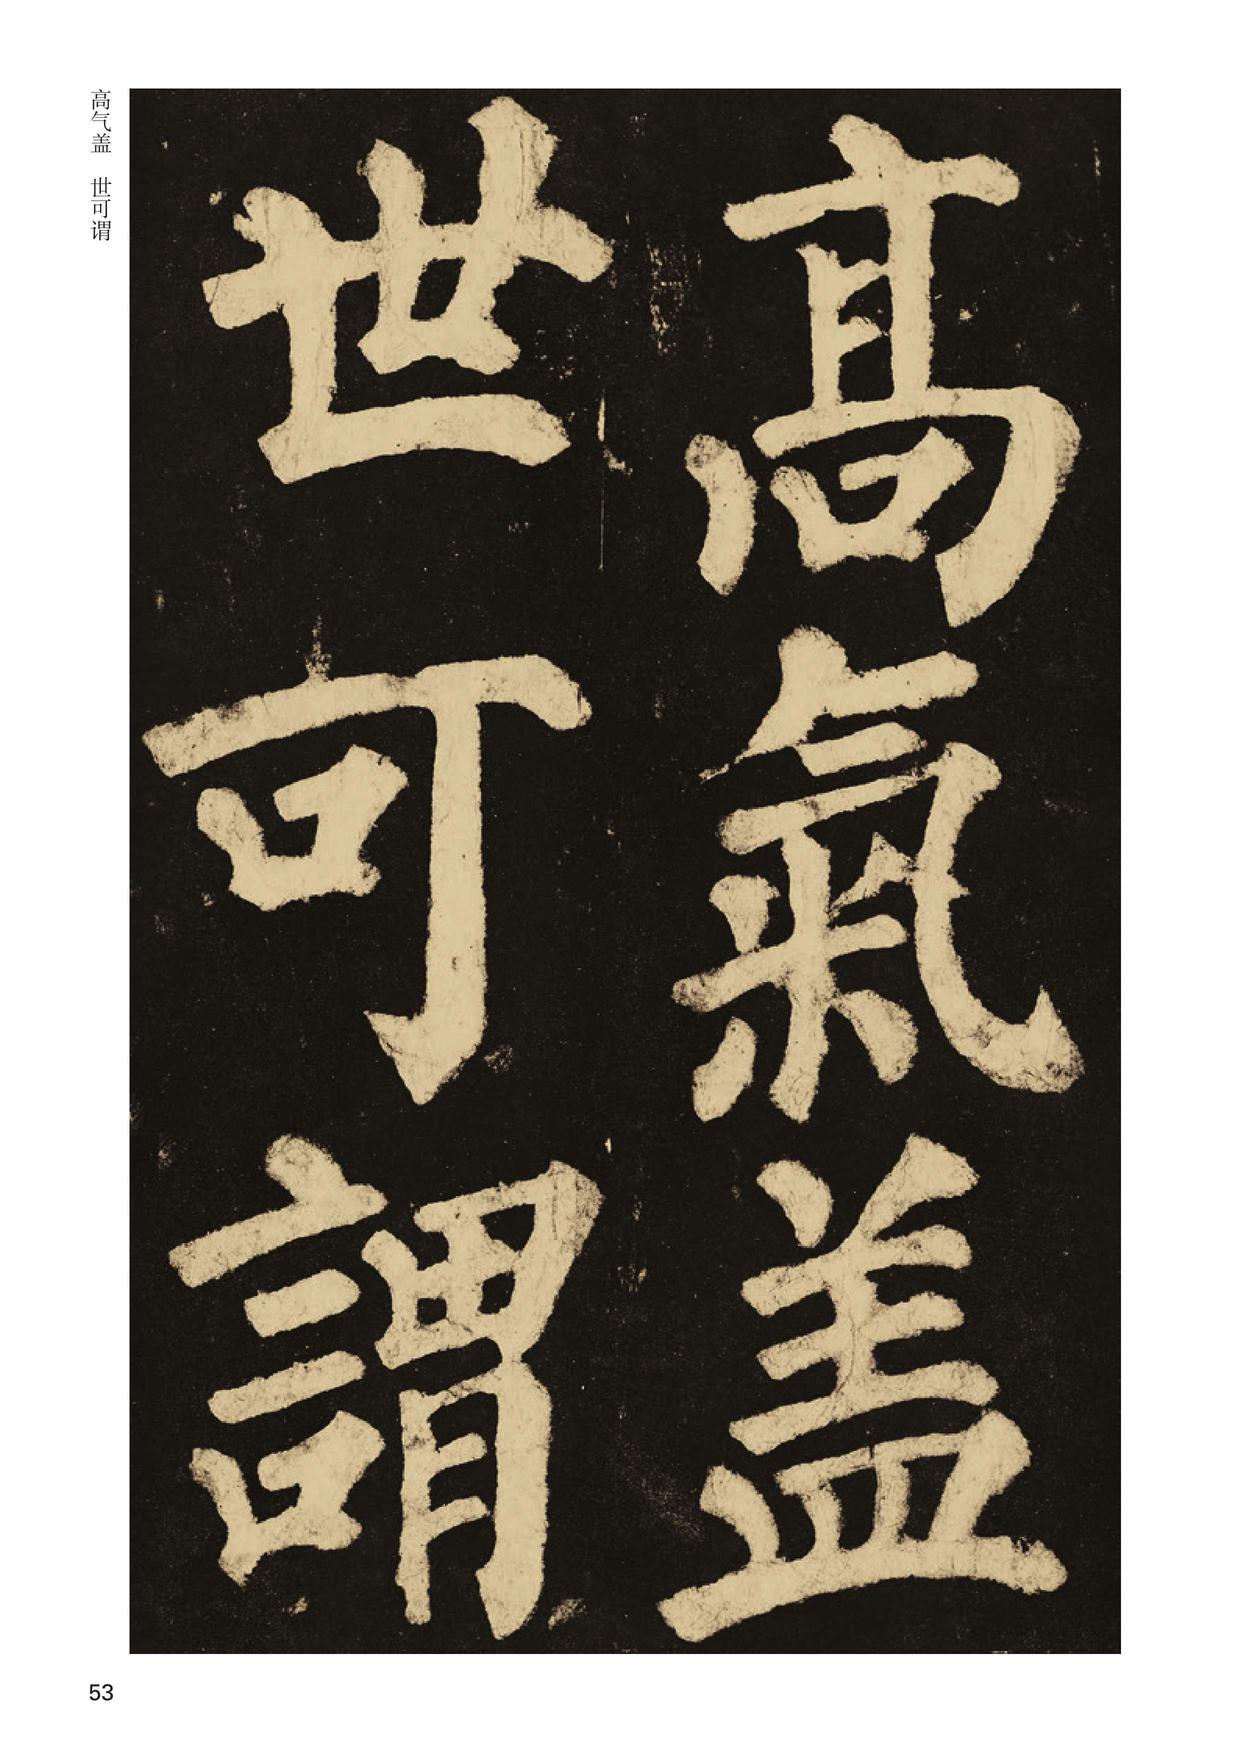 髙氣盖
世可謂
高气盖 世可谓
53